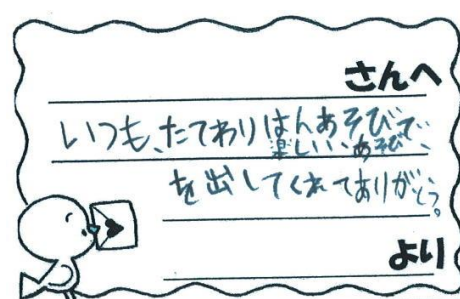 さんへ
いつも、たてわりはんあそびで、
楽しい、あそび、
を出してくれてありがとう。
より